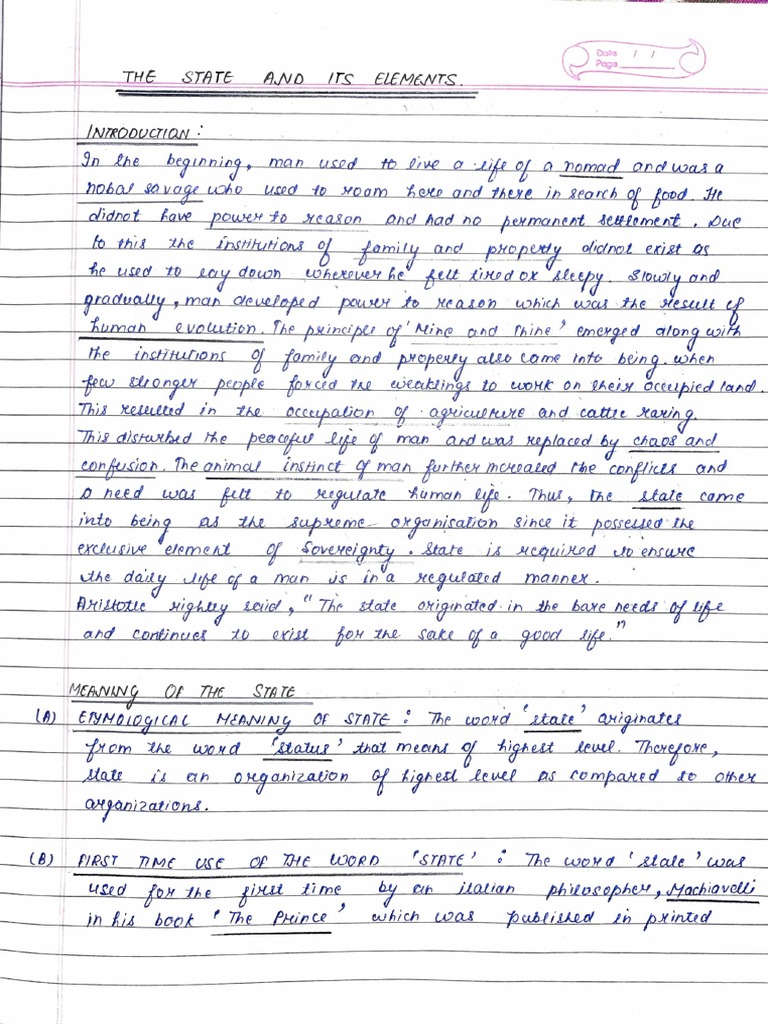 Date / /
Page
THE STATE AND ITS ELEMENTS.
INTRODUCTION :
In the beginning, man used to live a life of a nomad and was a
nobal savage who used to roam here and there in search of food. He
didnot have power to reason and had no permanent settlement. Due
to this the institutions of family and property didnot exist as
he used to lay down wherever he felt tired or sleepy. Slowly and
gradually, man developed power to reason which was the result of
human evolution. The principle of 'Mine and Thine' emerged along with
the institutions of family and property also came into being. when
few stronger people forced the weaklings to work on their occupied land.
This resulted in the occupation of agriculture and cattle raring.
This disturbed the peaceful life of man and was replaced by chaos and
confusion. The animal instinct of man further increased the conflicts and
a need was felt to regulate human life. Thus, the state came
into being as the supreme organisation since it possessed the
exclusive element of Sovereignty. State is required to ensure
the daily life of a man is in a regulated manner.
Aristotle rightly said, "The state originated in the bare needs of life
and continues to exist for the sake of a good life."
MEANING OF THE STATE
(A) ETYMOLOGICAL MEANING OF STATE : The word 'state' originates
from the word 'status' that means of highest level. Therefore,
state is an organization of highest level as compared to other
organizations.
(B) FIRST TIME USE OF THE WORD 'STATE' : The word 'state' was
used for the first time by an italian philosopher, Machiavelli
in his book 'The Prince', which was published in printed